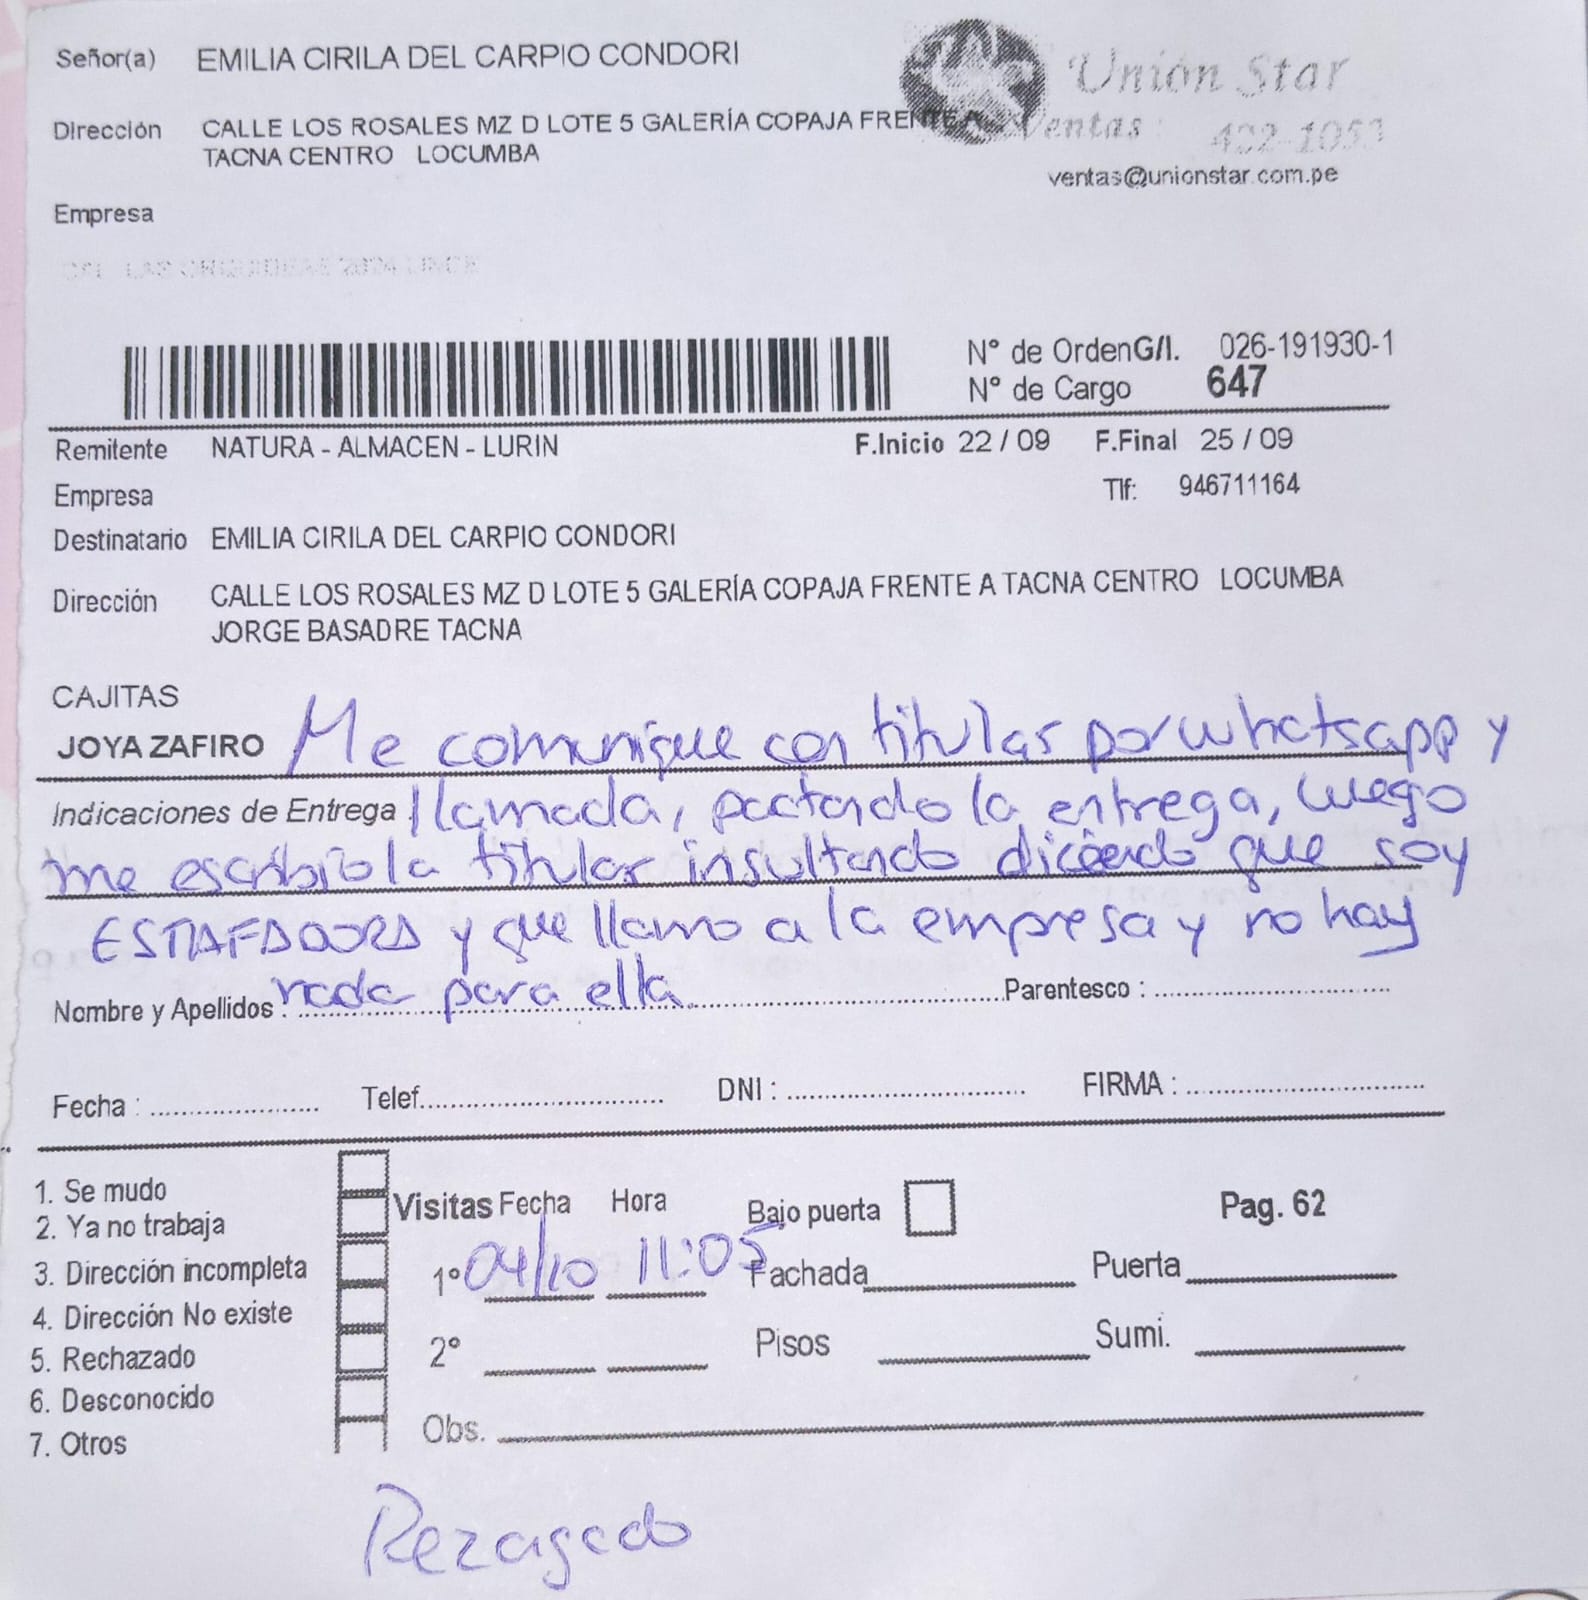 Señor(a) EMILIA CIRILA DEL CARPIO CONDORI
Unión Star
Dirección CALLE LOS ROSALES MZ D LOTE 5 GALERÍA COPAJA FRENTE A
Ventas: 422-1053
TACNA CENTRO LOCUMBA
ventas@unionstar.com.pe
Empresa
CAL. LAS ORQUIDEAS LINCE
N° de OrdenG/I. 026-191930-1
N° de Cargo 647
Remitente NATURA - ALMACEN - LURIN F.Inicio 22 / 09 F.Final 25 / 09
Empresa Tlf: 946711164
Destinatario EMILIA CIRILA DEL CARPIO CONDORI
Dirección CALLE LOS ROSALES MZ D LOTE 5 GALERÍA COPAJA FRENTE A TACNA CENTRO LOCUMBA
JORGE BASADRE TACNA
CAJITAS
JOYA ZAFIRO Me comunique con titular por whatsapp y
Indicaciones de Entrega llamada, pactando la entrega, luego
me escribio la titular insultando diciendo que soy
ESTAFADORA y que llamo a la empresa y no hay
Nombre y Apellidos : nada para ella Parentesco :
Fecha : Telef. DNI : FIRMA :
1. Se mudo
2. Ya no trabaja
3. Dirección incompleta
4. Dirección No existe
5. Rechazado
6. Desconocido
7. Otros
Visitas Fecha Hora Bajo puerta Pag. 62
1° 04/10 11:05 Fachada Puerta
2° Pisos Sumi.
Obs.
Rezagado